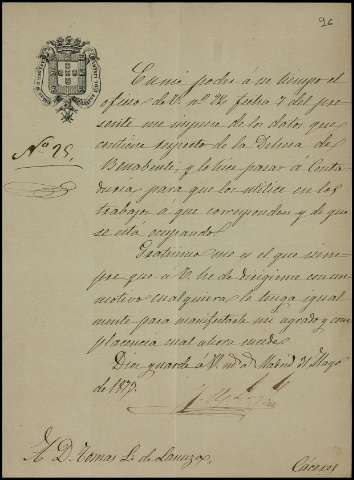 96
En mi poder á su tiempo el
oficio de V. nº 22 fecha 7 del pre-
sente me impuse de los datos que
contiene respecto de la Dehesa de
Nº 25.
Benabente, y lo hice pasar á Conta-
duria para que los utilice en los
trabajos á que corresponden y de que
se está ocupando
me es el que siem-
pre que á V. he de dirigirme con un
motivo cualquiera lo tenga igual
mente para manifestarle mi agrado y com-
placencia cual ahora sucede
Dios guarde á V. Madrid 31 Mayo
de 1879.
D. Tomas L. de
Cáceres